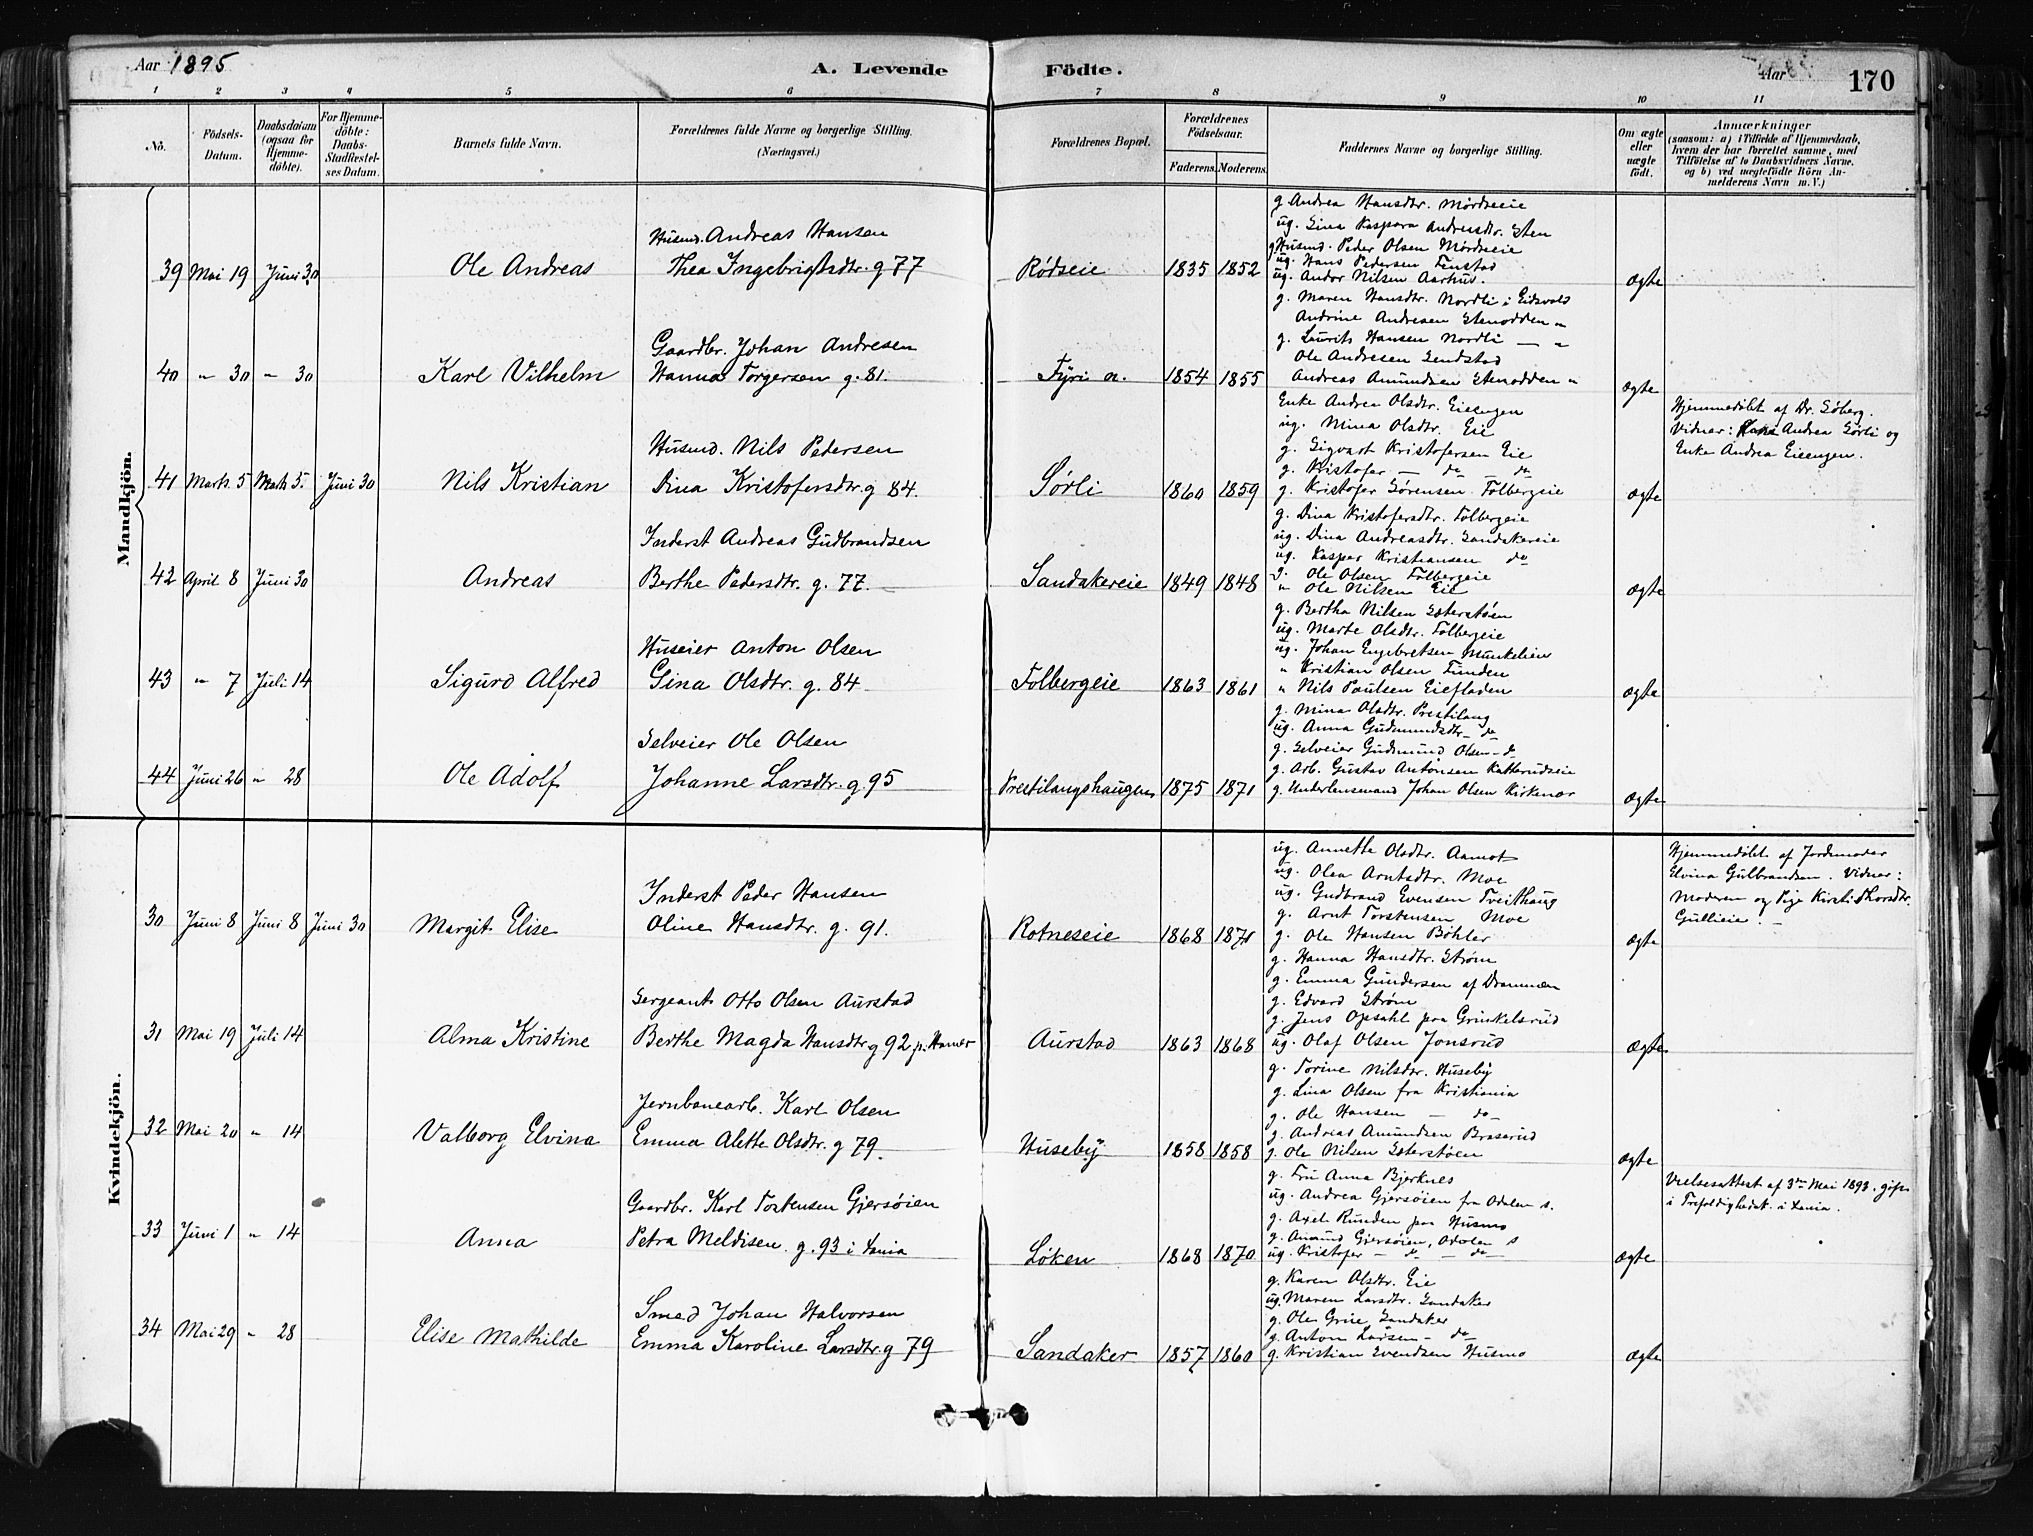 Aar 1895
A. Levende Födte.
Aar
170
1 2 3 4 5 6 7 8 9 10 11
No.
Födsels-Datum.
Daabsdatum (ogsaa for Hjemme-döbte).
For Hjemme-döbte: Daabs-Stadfæstel-ses Datum.
Barnets fulde Navn.
Forældrenes fulde Navne og borgerlige Stilling. (Næringsvei.)
Forældrenes Bopæl.
Forældrenes Födselsaar.
Faderens. Moderens.
Faddernes Navne og borgerlige Stilling.
Om ægte eller uægte födt.
Anmærkninger
(saasom: a) i Tilfælde af Hjemmedaab,
hvem der har forrettet samme, med
Tilföielse af to Daabsvidners Navne,
og b) ved uægtefödte Börn An-
melderens Navn m. V.)
Mandkjön.
39 Mai 19 Juni 30 Ole Andreas
Husmd. Andreas Hansen
Thea Ingebrigtsdtr. g 77
Rødseie 1835 1852
g. Andrea Hansdtr. Mørdseie
ug. Gina Kaspara Andreasdtr. Sten
g Husmd. Peder Olsen Mordseie
ug. Hans Pedersen Finstad
ug. Andor Nilsen Aarhus.
ægte
40 " 30 " 30 Karl Vilhelm
Gaardbr. Johan Andresen
Hanna Torgersen g. 81.
Fyri a. 1854 1855
g. Maren Hansdtr. Nordli i Eidsvold
Andrine Andresen Stenodden "
g. Laurits Hansen Nordli — "
Ole Andresen Gendstad
Andreas Amundsen Stenodden "
ægte
41 Marts 5 Marts 5. Juni 30 Nils Kristian
Husmd. Nils Pedersen
Dina Kristofersdtr g 84.
Sørli 1860 1859
Enke Andrea Olsdtr. Eieengen
ug. Mina Olsdtr. Eie
g. Sigvart Kristofersen Eie
g. Kristofer — do do
g. Kristofer Sørensen Folbergeie
ægte
Hjemmedøbt af Dr. Søberg.
Vidner: Andrea Sørli og
Enke Andrea Eieengen.
42 April 8 Juni 30 Andreas
Inderst Andreas Gudbrandsen
Berthe Pedersdtr. g. 77.
Sandakereie 1849 1848
g. Dina Kristofersdtr. Folbergeie
ug. Dina Andreasdtr. Sandakereie
ug. Kaspar Kristiansen do
g. Ole Olsen Folbergeie
" Ole Nilsen Eie
ægte
43 " 7 Juli 14 Sigurd Alfred
Huseier Anton Olsen
Gina Olsdtr. g. 84
Folbergeie 1863 1861
g. Bertha Nilsen Sæterstøen
ug. Marte Olsdtr. Folbergeie
ug. Johan Engebretsen Munkelien
" Kristian Olsen Funden
" Nils Paulsen Eiefladen
ægte
44 Juni 26 " 28 Ole Adolf
Selveier Ole Olsen
Johanne Larsdtr. g. 95
Prestilangshaugen 1875 1871
g. Mina Olsdtr. Prestilang
ug. Anna Gudmundsdtr — do
g. Selveier Gudmund Olsen — do
g. Arb. Gustav Antonsen Katterudseie
g. Underlensmand Johan Olsen Kirkemor
ægte
Kvindekjön.
30 Juni 8 Juni 8 Juni 30 Margit Elise
Inderst Peder Hansen
Oline Hansdtr. g. 91.
Rotneseie 1868 1871
ug. Annette Olsdtr. Aamot
ug. Olea Arntsdtr. Moe
ug. Gudbrand Evensen Tveithaug
g. Arnt Torstensen Moe
g. Ole Hansen Bøhler
ægte
Hjemmedøbt af Jordmoder
Elvina Gulbrandsen. Vidner:
Moderen og Pige Kirsti Thorsdtr.
Gullieie. —
31 Mai 19 Juli 14 Alma Kristine
Sergeant Otto Olsen Aurstad
Berthe Magda Hansdtr g 92 p. Hamar
Aurstad 1863 1868
g. Hanna Hansdtr. Strøm
g. Emma Gundersen af Drammen
g. Edvard Strøm
g. Jens Opsahl paa Grinkelsrud
ug. Olaf Olsen Jonsrud
ægte
32 Mai 20 " 14 Valborg Elvina
Jernbanearb. Karl Olsen
Emma Alette Olsdtr. g 79.
Huseby 1858 1858
g. Torine Nilsdtr. Huseby
g. Lina Olsen fra Kristiania
g. Ole Hansen — do
g. Andreas Amundsen Braserud
g. Ole Nilsen Sæterstøen
ægte
33 Juni 1 " 14 Anna
Gaardbr. Karl Tostensen Gjersøien
Petra Meldisen g. 93 i Xania
Løken 1868 1870
g. Fru Anna Bjerknes
ug. Andrea Gjersøien fra Odalen s.
g. Axel Runden paa Husmo
g. Amund Gjersøien, Odalen s
ug. Kristofer — do — do
ægte
Vielsesattest af 3die Mai 1893. gift
i Trefoldighedsk. i Xania.
34 Mai 29 " 28 Elise Mathilde
Smed Johan Halvorsen
Emma Karoline Larsdtr g 79
Sandaker 1857 1860
g. Karen Olsdtr. Eie
ug. Maren Larsdtr. Sandaker
g. Ole Grue Sandaker
g. Anton Larsen — do
g. Kristian Svendsen Husmo
ægte